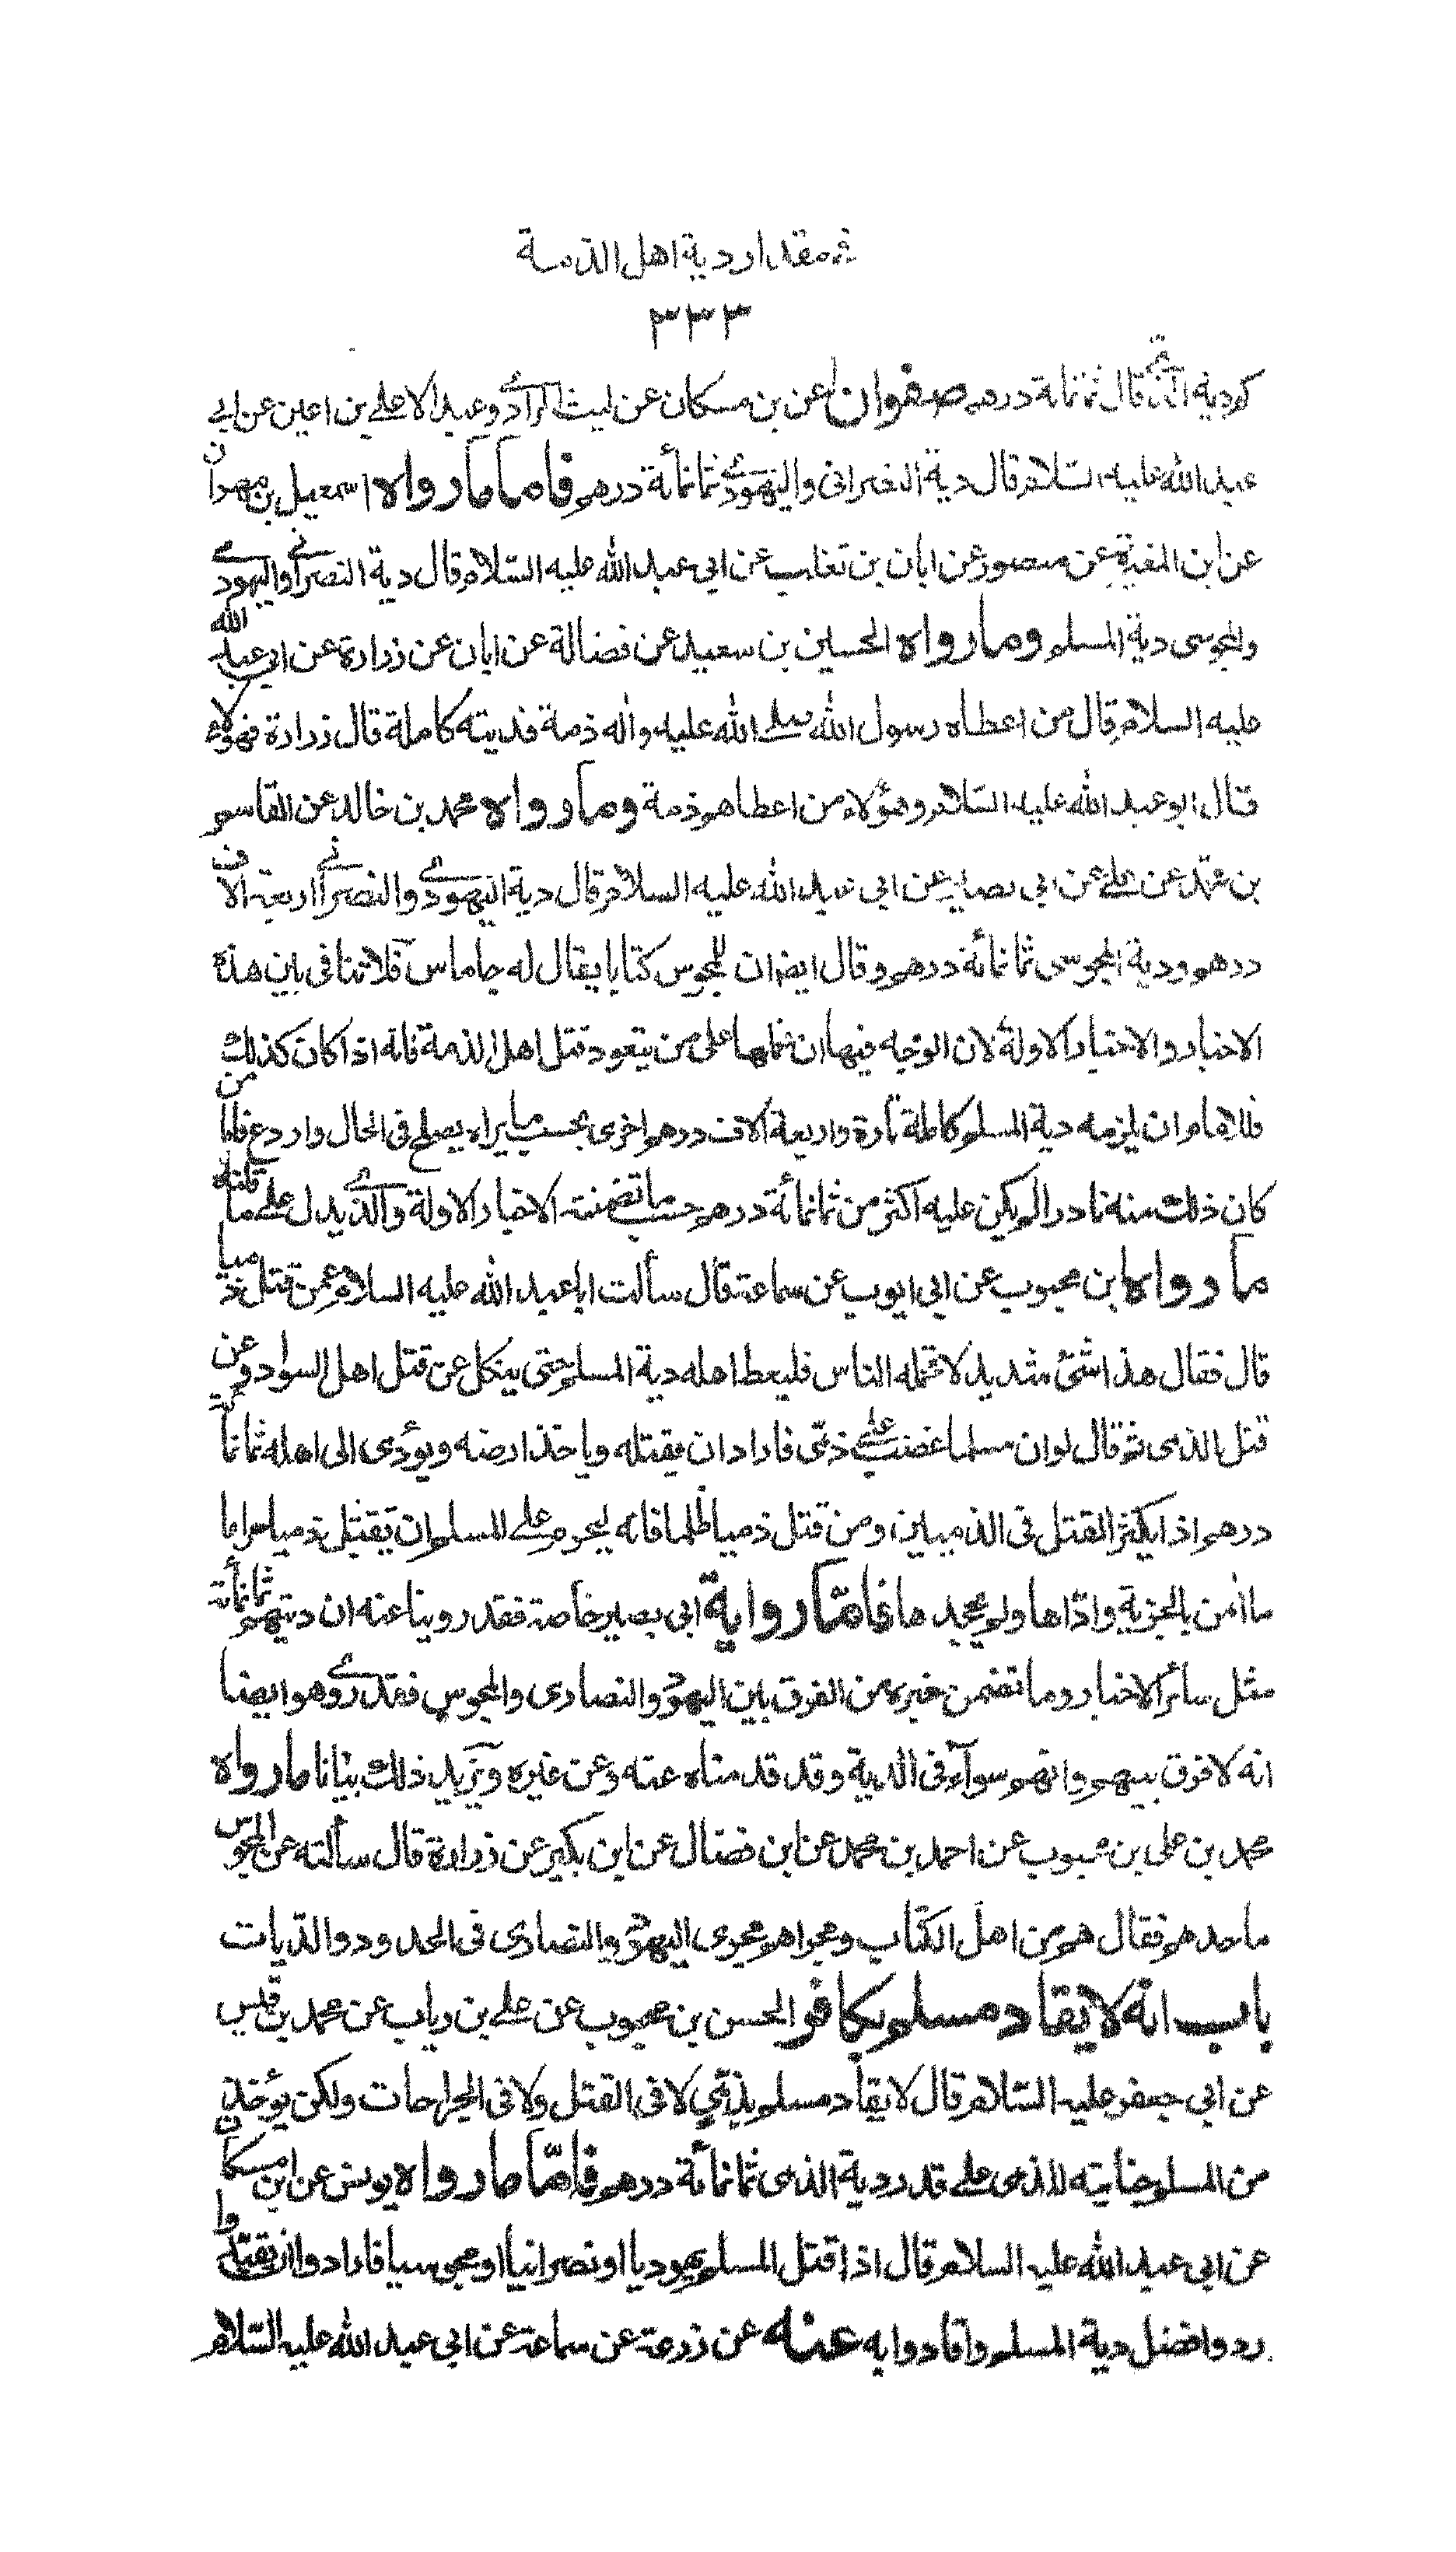 في مقدار دية اهل الذمة
٣٣٣
كم دية الذمي قال ثمانمائة درهم صفوان عن بن مسكان عن ليث المرادي وعبد الاعلى بن اعين عن ابي
عبد الله عليه السلام قال دية النصراني واليهودي ثمانمائة درهم فاما ما رواه اسمعيل بن مهران
عن ابن المغيرة عن منصور عن ابان بن تغلب عن ابي عبد الله عليه السلام قال دية النصراني واليهودي
والمجوسى دية المسلم وما رواه الحسين بن سعيد عن فضالة عن ابان عن زرارة عن ابي عبد الله
عليه السلام قال من اعطاه رسول الله صلى الله عليه واله ذمة فديته كاملة قال زرارة فهؤلاء
قال ابو عبد الله عليه السلام وهؤلاء من اعطاهم ذمة وما رواه محمد بن خالد عن القاسم
بن محمد عن علي عن ابي بصير عن ابي عبد الله عليه السلام قال دية اليهودي والنصراني اربعة الاف
درهم ودية المجوسى ثمانمائة درهم وقال ايضا ان للمجوس كتابا يقال له جاماس فلا تنافى بين هذه
الاخبار والاخبار الاولة لان الوجه فيها ان نحملها على من يتعود قتل اهل الذمة فانه اذا كان كذلك
فللامام ان يلزمه دية المسلم كاملة تارة واربعة آلاف درهم اخرى بحسب ما يراه يصلح في الحال واردع فاما من
كان ذلك منه نادرا لم يكن عليه اكثر من ثمانمائة درهم حسب ما تضمنته الاخبار الاولة والذي يدل على ما قلناه
ما رواه ابن محبوب عن ابي ايوب عن سماعة قال سألت ابا عبد الله عليه السلام عمن قتل ذميا
قال فقال هذا شئ شديد لا يحتمله الناس فليعط اهله دية المسلم حتى ينكل عن قتل اهل السواد وعن
قتل الذمى ثم قال لو ان مسلما غضب على ذمى فاراد ان يقتله وياخذ ارضه ويؤدى الى اهله ثمانمائة
درهم اذا يكثر القتل فى الذميين ومن قتل ذميا ظلما فانه ليحرم على المسلم ان يقتل ذميا حراما
ما امن بالجزية واداها ولم يجحدها فاما رواية ابى بصير خاصة فقد روينا عنه ان ديتهم ثمانمائة
مثل سائر الاخبار وما تضمن خبره من الفرق بين اليهود والنصارى والمجوس فقد روى هو ايضا
انه لا فرق بينهم وانهم سواء فى الدية وقد قدمناه عنه وعن غيره ويزيد ذلك بيانا ما رواه
محمد بن على بن محبوب عن احمد بن محمد عن ابن فضال عن ابن بكير عن زرارة قال سألته عن المجوس
ما حدهم فقال هم من اهل الكتاب ومجراهم مجرى اليهود والنصارى فى الحدود والديات
باب انه لا يقاد مسلم بكافر الحسن بن محبوب عن على بن رياب عن محمد بن قيس
عن ابي جعفر عليه السلام قال لا يقاد مسلم بذمي لا فى القتل ولا فى الجراحات ولكن يؤخذ
من المسلم جنايته للذمى على قدر دية الذمى ثمانمائة درهم فاما ما رواه يونس عن ابن مسكان
عن ابى عبد الله عليه السلام قال اذا قتل المسلم يهوديا او نصرانيا او مجوسيا فارادوا ان يقتلوا
ردوا فضل دية المسلم واقادوا به عنه عن زرعة عن سماعة عن ابى عبد الله عليه السلام